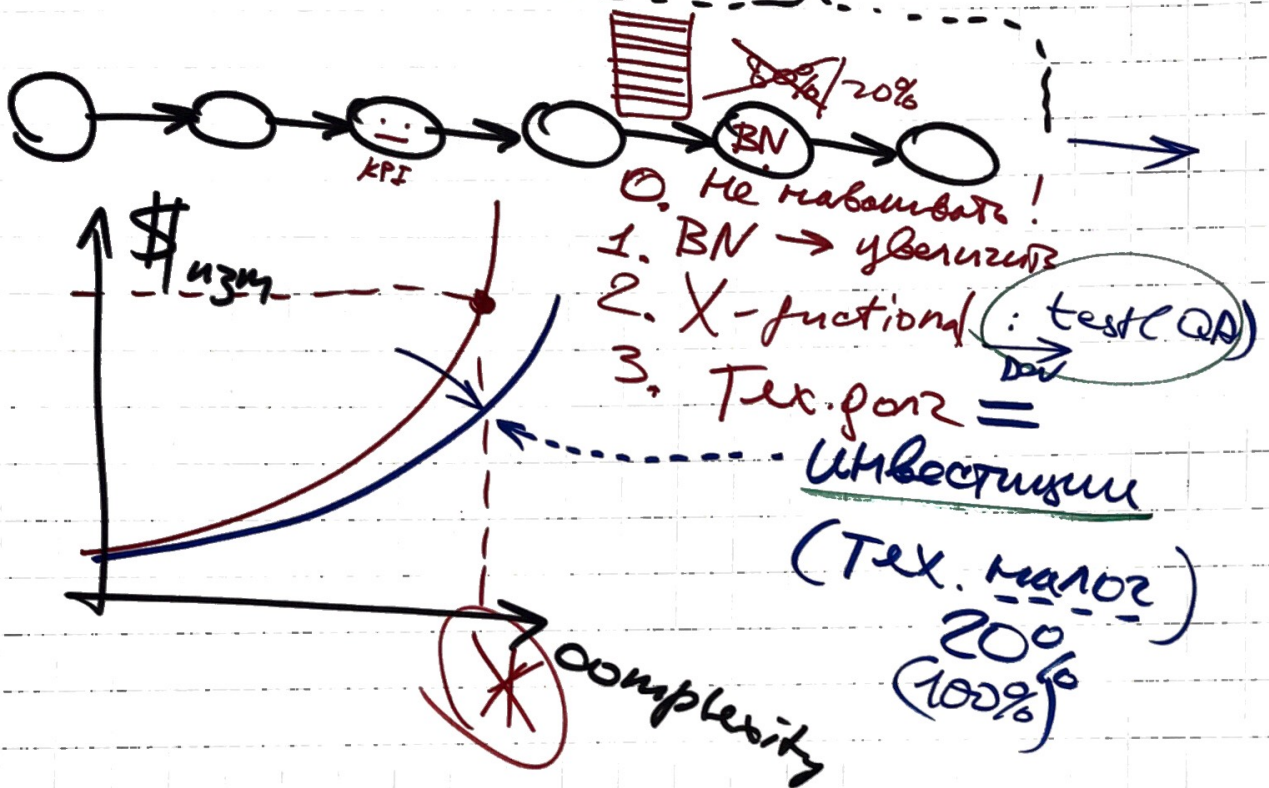 20%
BN
KPI
0. Не навешивать!
1. BN → увеличить
$изм
2. X-fuctional : test(QA)
Dev
3. Тех.долг =
инвестиции
(Тех. налог)
20%
(100%)
complexity